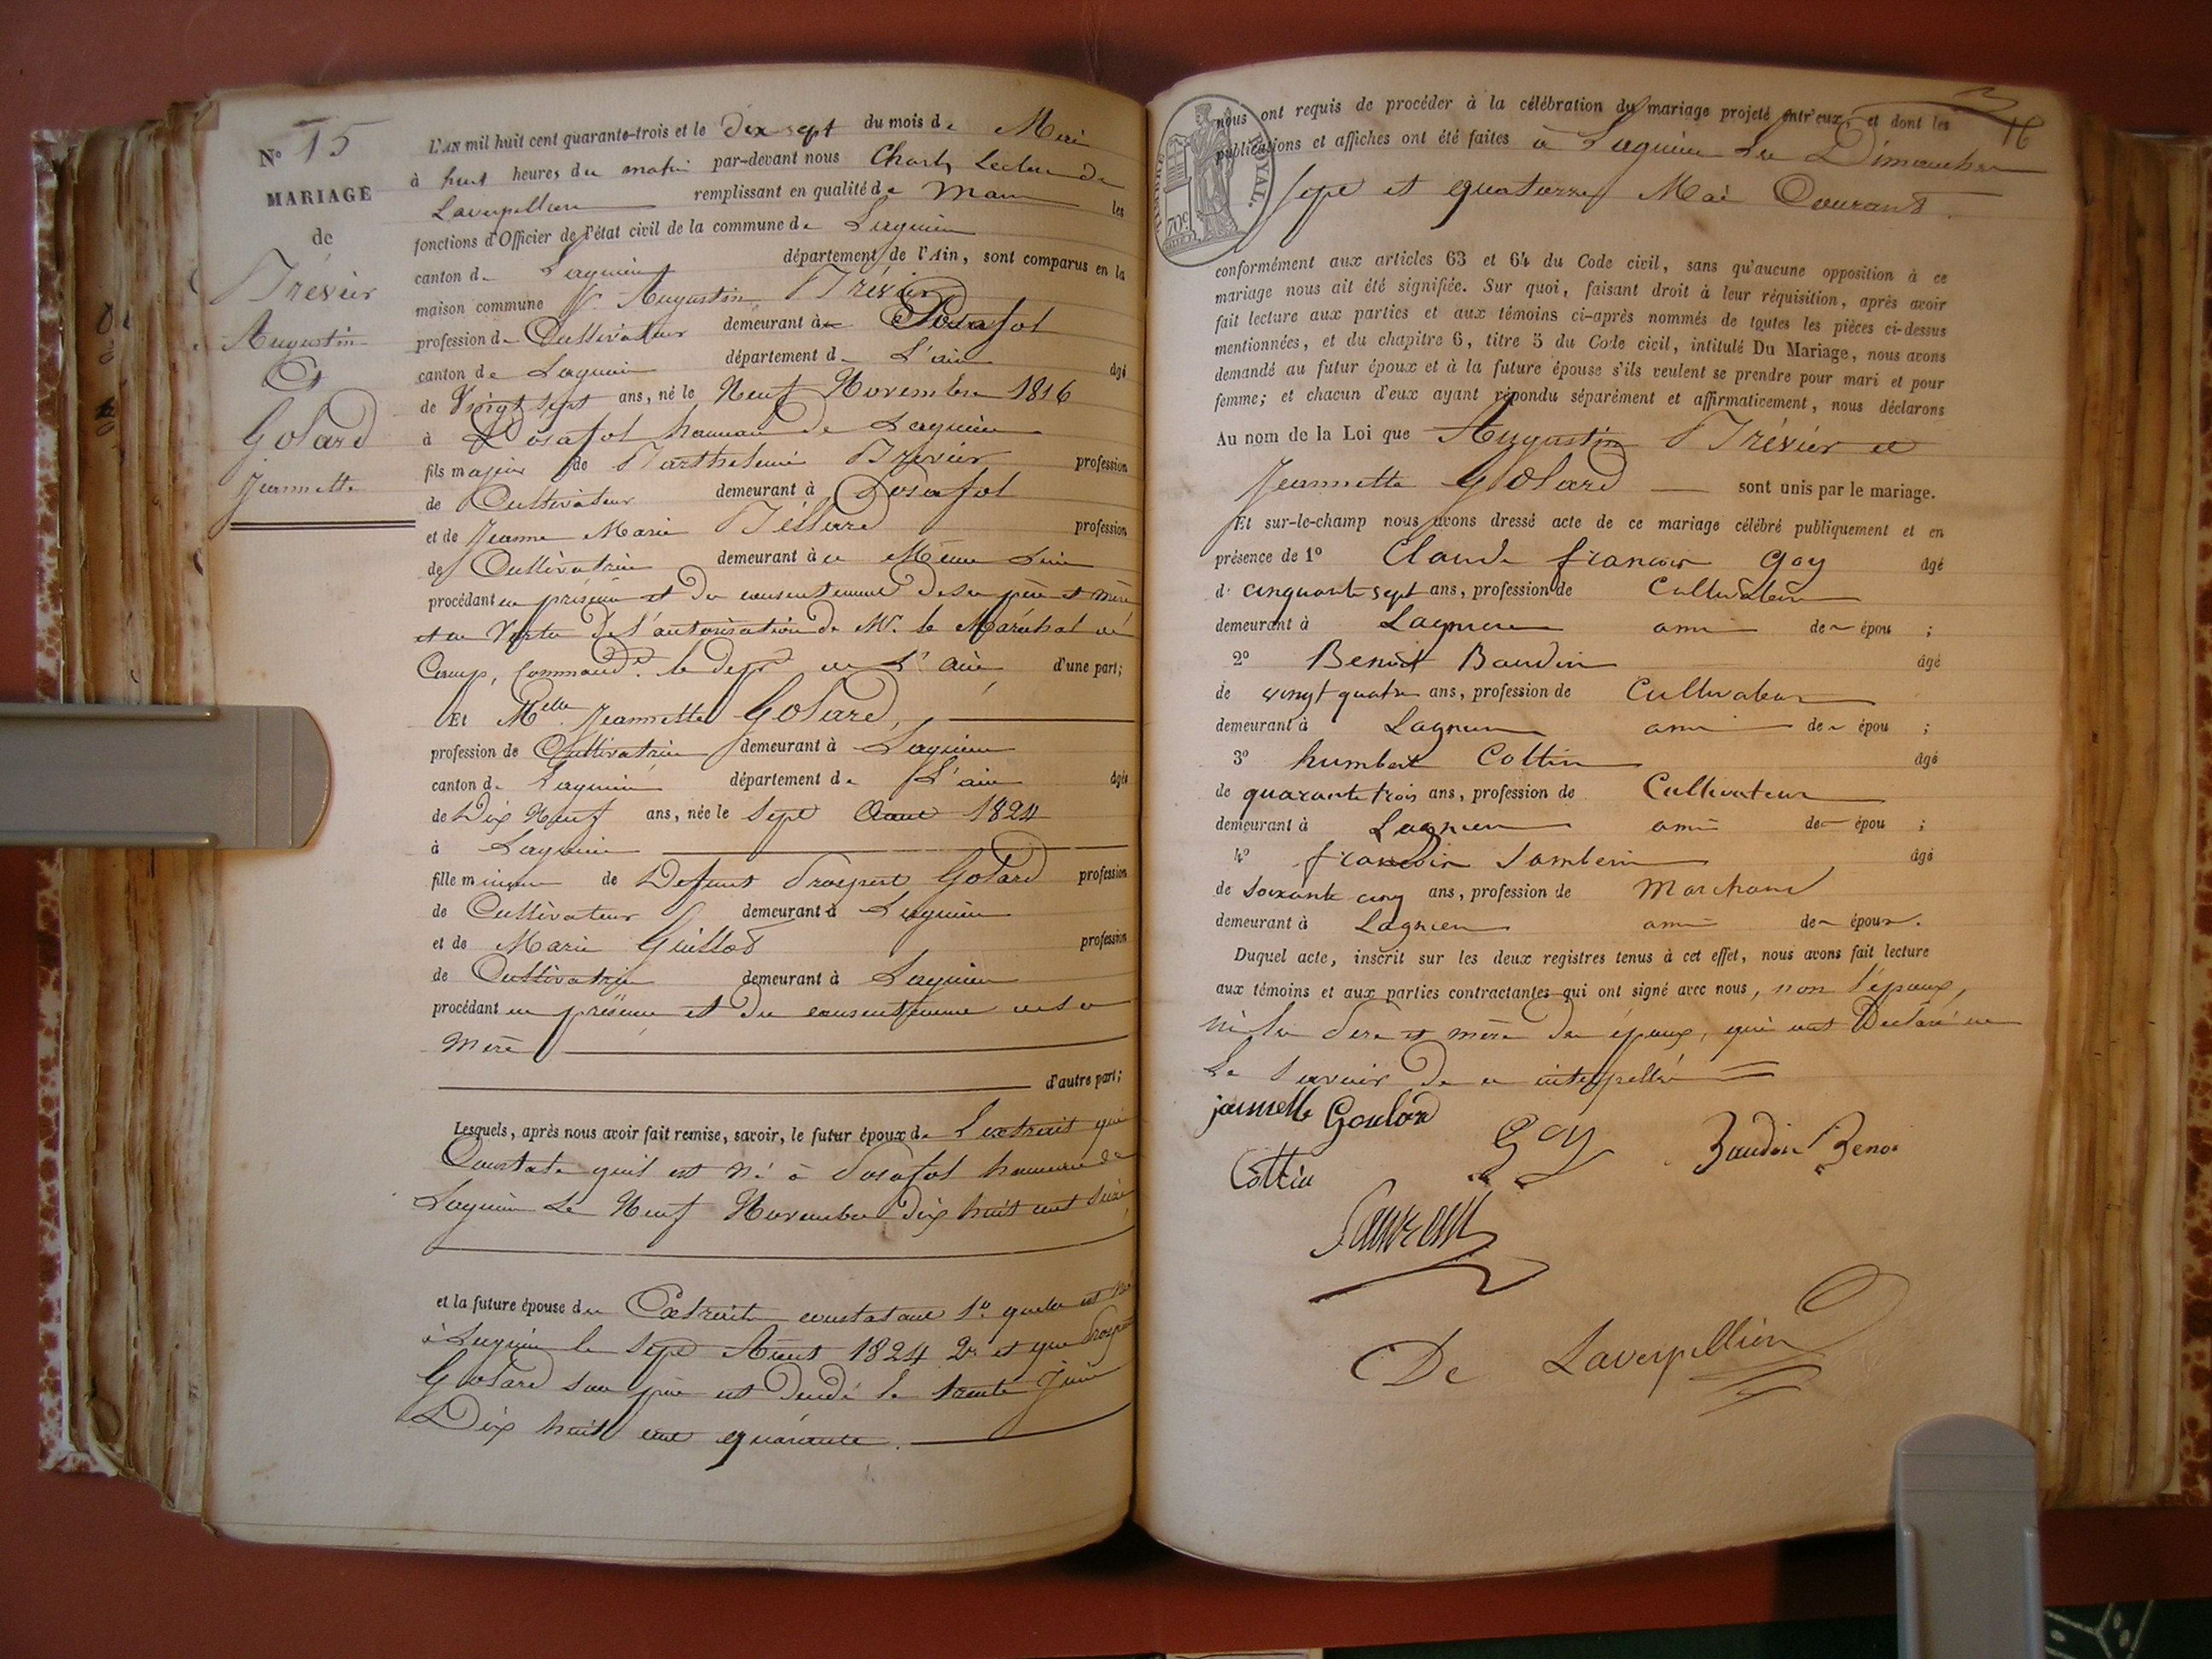 N° 15
MARIAGE
de
Trévier
Augustin
Et
Golard
Jeannette
L'AN mil huit cent quarante-trois et le dix sept du mois de Mai
à huit heures du matin par-devant nous Charles de
Laverpillière remplissant en qualité de Maire les
fonctions d'Officier de l'état civil de la commune de Lagnieu
canton de Lagnieu département de l'Ain, sont comparus en la
maison commune Sr. Augustin Trévier
profession de Cultivateur demeurant à Posafol
canton de Lagnieu département de L'ain âgé
de Vingt sept ans, né le Neuf Novembre 1816
à Posafol hameau de Lagnieu
fils majeur de Barthelemi Trévier profession
de Cultivateur demeurant à Posafol
et de Jeanne Marie Tillard profession
de Cultivatrice demeurant à ce Même Lieu
procédant en présence et du consentement de ses père et mère
et en Vertu de l'autorisation de Mr. le Maréchal de
Camp, Command.t le dep.t de L'ain d'une part;
Et Melle Jeannette Golard,
profession de Cultivatrice demeurant à Lagnieu
canton de Lagnieu département de L'ain âgée
de Dix Neuf ans, née le Sept Aout 1824
à Lagnieu
fille mineure de Defunt Prospert Golard profession
de Cultivateur demeurant à Lagnieu
et de Marie Guillot profession
de Cultivatrice demeurant à Lagnieu
procédant en présence et du consentement de sa
Mère
d'autre part;
Lesquels, après nous avoir fait remise, savoir, le futur époux de L'extrait qui
Constate qu'il est Né à Posafol hameau de
Lagnieu Le Neuf Novembre dix huit cent Seize
et la future épouse des Extraits constatant 1° quelle est Née
à Lagnieu le Sept Aout 1824 2° et que Prospert
Golard son père est Décédé le trente Juin
Dix huit cent quarante.
16
TIMBRE ROYAL.
70c
nous ont requis de procéder à la célébration du mariage projeté entr'eux, et dont les
publications et affiches ont été faites à Lagnieu Les Dimanches
Sept et quatorze Mai Courant.
conformément aux articles 63 et 64 du Code civil, sans qu'aucune opposition à ce
mariage nous ait été signifiée. Sur quoi, faisant droit à leur réquisition, après avoir
fait lecture aux parties et aux témoins ci-après nommés de toutes les pièces ci-dessus
mentionnées, et du chapitre 6, titre 5 du Code civil, intitulé Du Mariage, nous avons
demandé au futur époux et à la future épouse s'ils veulent se prendre pour mari et pour
femme; et chacun d'eux ayant répondu séparément et affirmativement, nous déclarons
Au nom de la Loi que Augustin Trévier et
Jeannette Golard sont unis par le mariage.
Et sur-le-champ nous avons dressé acte de ce mariage célébré publiquement et en
présence de 1° Claude françois Goy âgé
de cinquante sept ans, profession de Cultivateur
demeurant à Lagnieu ami des épou ;
2° Benoit Baudin âgé
de vingt quatre ans, profession de Cultivateur
demeurant à Lagnieu ami des épou ;
3° humbert Cottin âgé
de quarante trois ans, profession de Cultivateur
demeurant à Lagnieu ami des épou ;
4° françois âgé
de Soixante cinq ans, profession de Marchand
demeurant à Lagnieu ami des époux.
Duquel acte, inscrit sur les deux registres tenus à cet effet, nous avons fait lecture
aux témoins et aux parties contractantes qui ont signé avec nous, non l'époux,
ni les Père et mère des époux, qui ont Déclaré ne
Le Savoir de ce interpellés
jannette Goulard
Goy
Baudin Benoi
Cottin
De Laverpillière